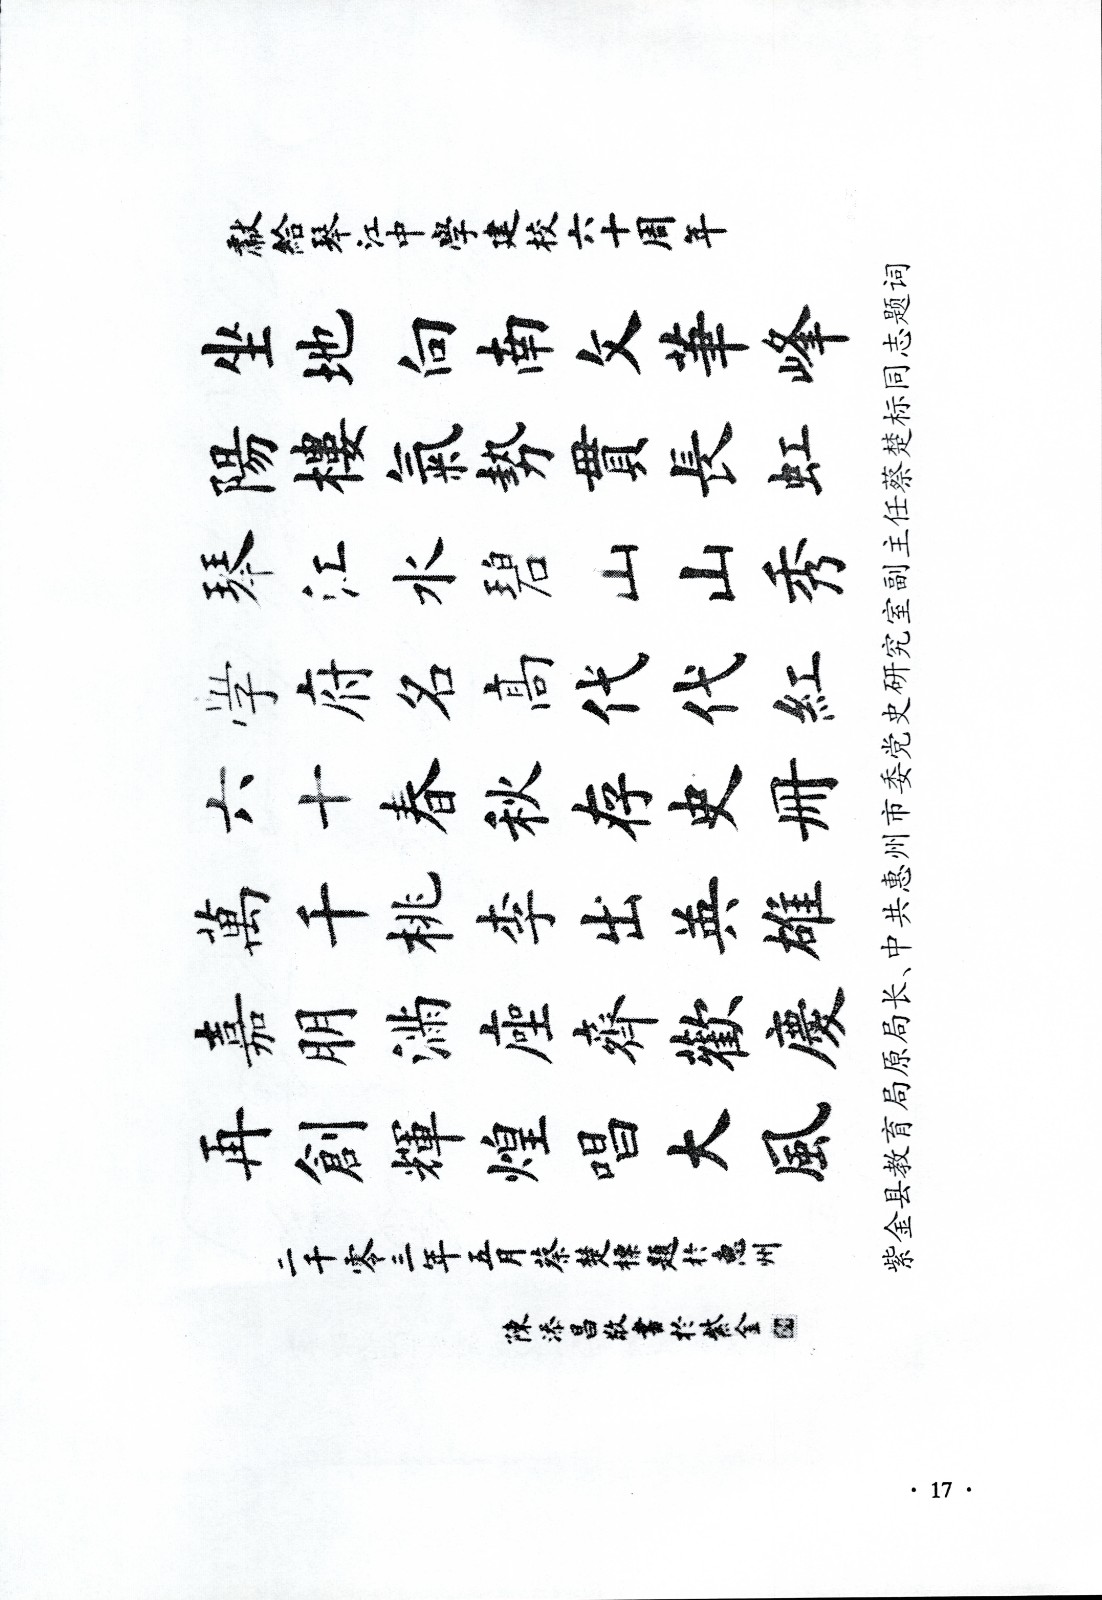 獻給琴江中學建校六十周年
坐地向南文華峰
陽樓氣勢貫長虹
琴江水碧山山秀
学府名高代代紅
六十春秋存史冊
萬千桃李出英雄
嘉朋满座齊歡慶
再創輝煌唱大風
二千零三年五月蔡楚標題於惠州
陳添昌敬書於紫金
紫金县教育局原局长、中共惠州市委党史研究室副主任蔡楚标同志题词
· 17 ·